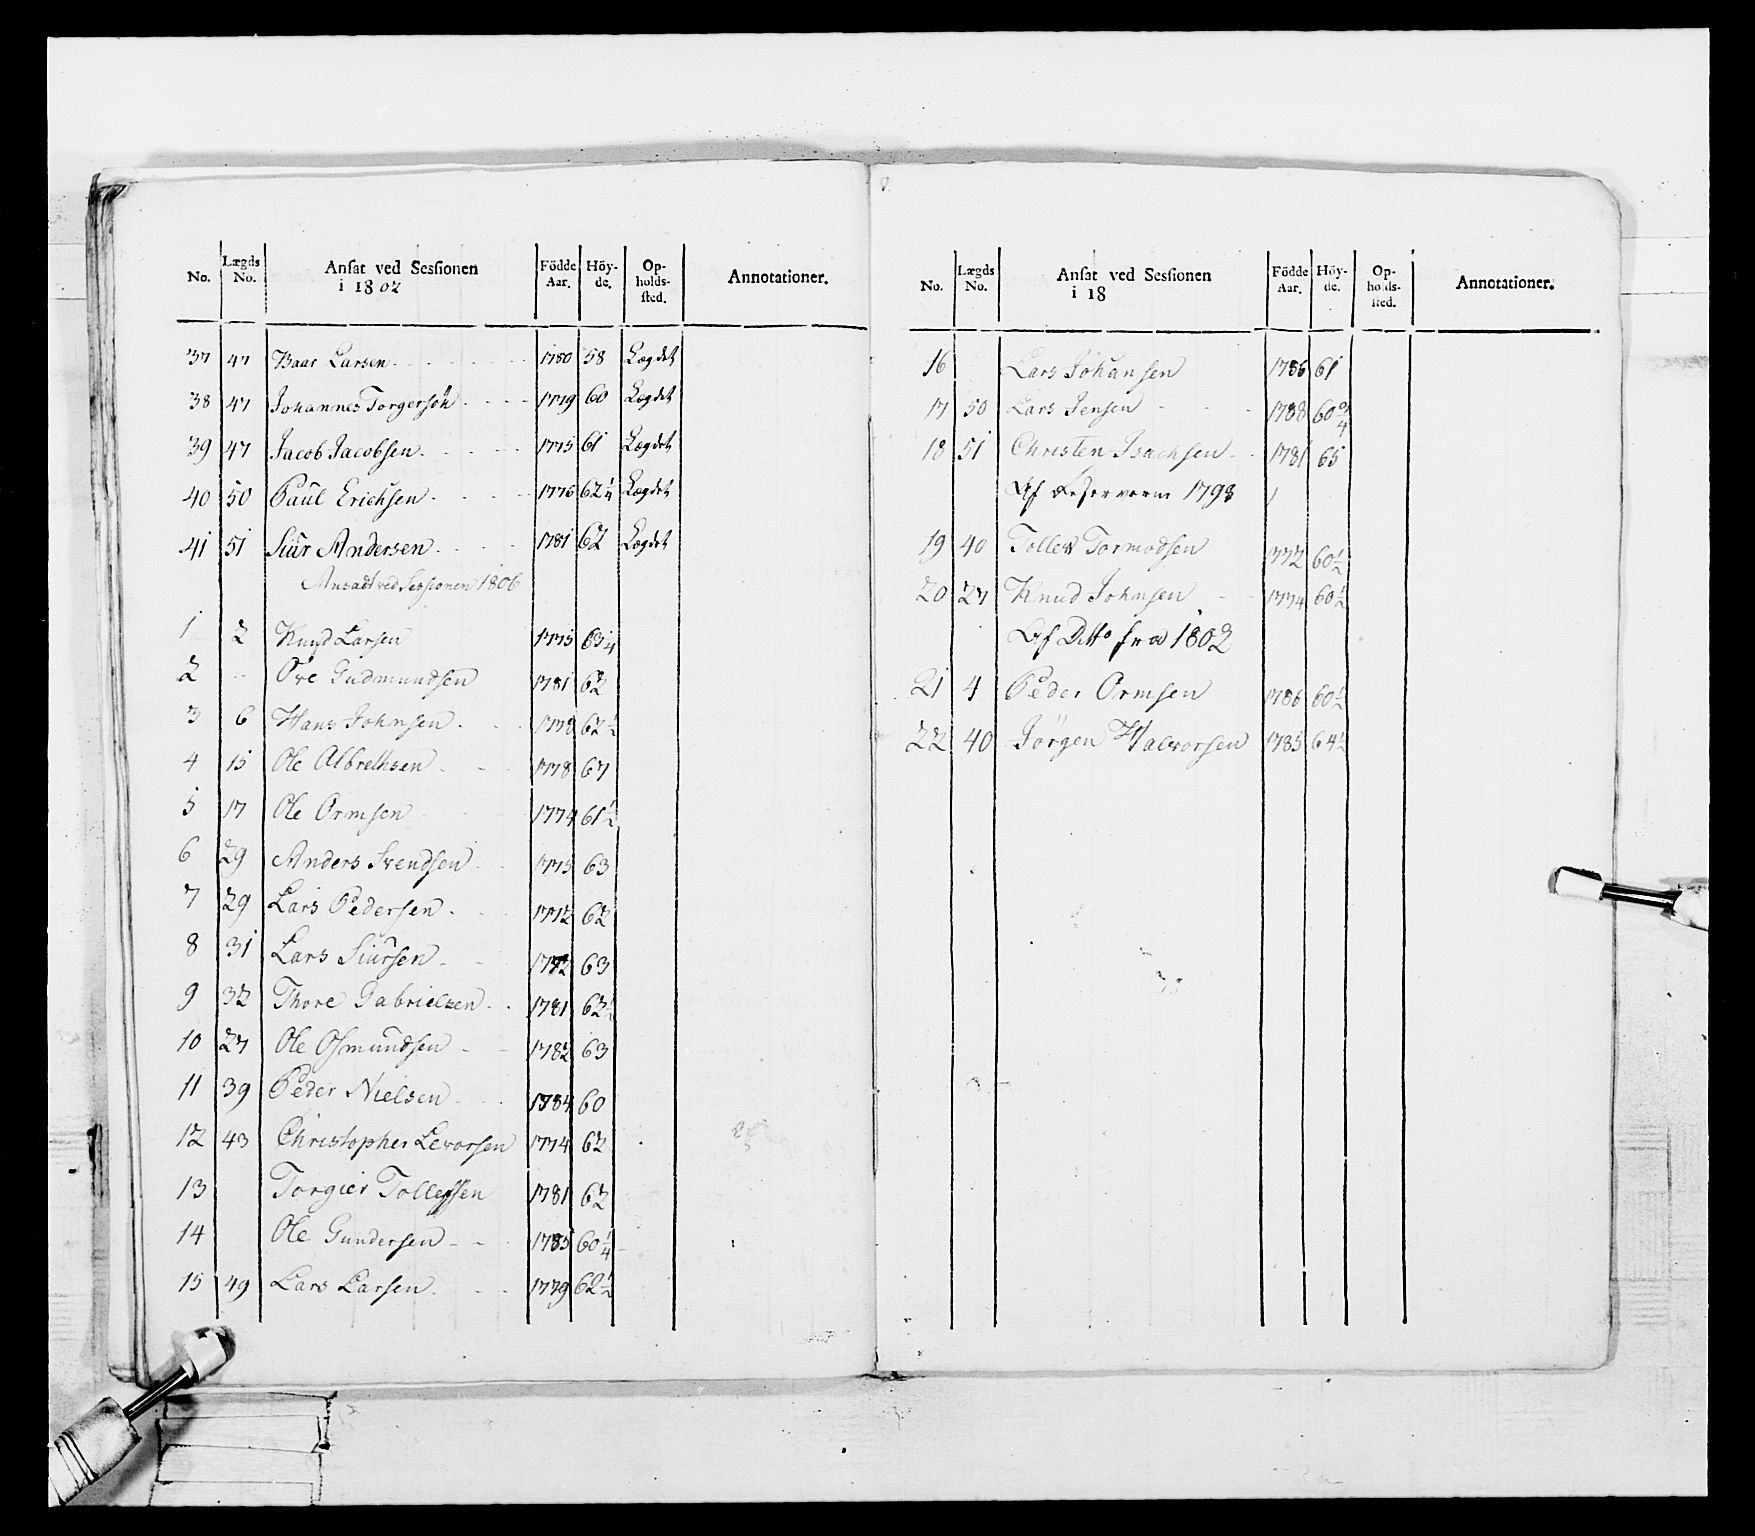 No. Lægds No. Ansat ved Sessionen i 1802 Födde Aar. Höyde. Opholdssted. Annotationer.
37 47 Baar Larsen 1780 58 Lægdet
38 47 Johannes Torgersön 1779 60 Lægdet
39 47 Jacob Jacobsen 1775 61 Lægdet
40 50 Paul Erichsen 1776 62 1/4 Lægdet
41 51 Siur Andersen 1781 62 Lægdet
Ansadt ved Sessionen 1806
1 2 Knud Larsen 1775 63 1/4
2 " Ove Gudmundsen 1781 62
3 6 Hans Johnsen 1778 62 1/2
4 15 Ole Albrethsen 1778 67
5 17 Ole Ormsen 1774 61 1/2
6 29 Anders Svendsen 1775 63
7 29 Lars Pedersen 1772 62
8 31 Lars Siursen 1772 63
9 32 Thore Gabrielsen 1781 63 1/2
10 27 Ole Osmundsen 1782 63
11 39 Peder Nielsen 1784 60
12 43 Christopher Levorsen 1774 62
13 Torgier Tollefsen 1781 62
14 Ole Gundersen 1785 60 1/4
15 49 Lars Larsen 1779 62 1/2
No. Lægds No. Ansat ved Sessionen i 18 Födde Aar. Höyde. Opholdssted. Annotationer.
16 Lars Johansen 1786 61
17 50 Lars Jensen 1788 60 3/4
18 51 Christen Isachsen 1781 65
Af Reserverne 1798
19 40 Tollev Tormodsen 1772 60 1/2
20 27 Knud Johnsen 1774 60 1/2
Af Ditto fra 1802
21 4 Peder Ormsen 1786 60 1/2
22 40 Jörgen Halvorsen 1785 64 1/2